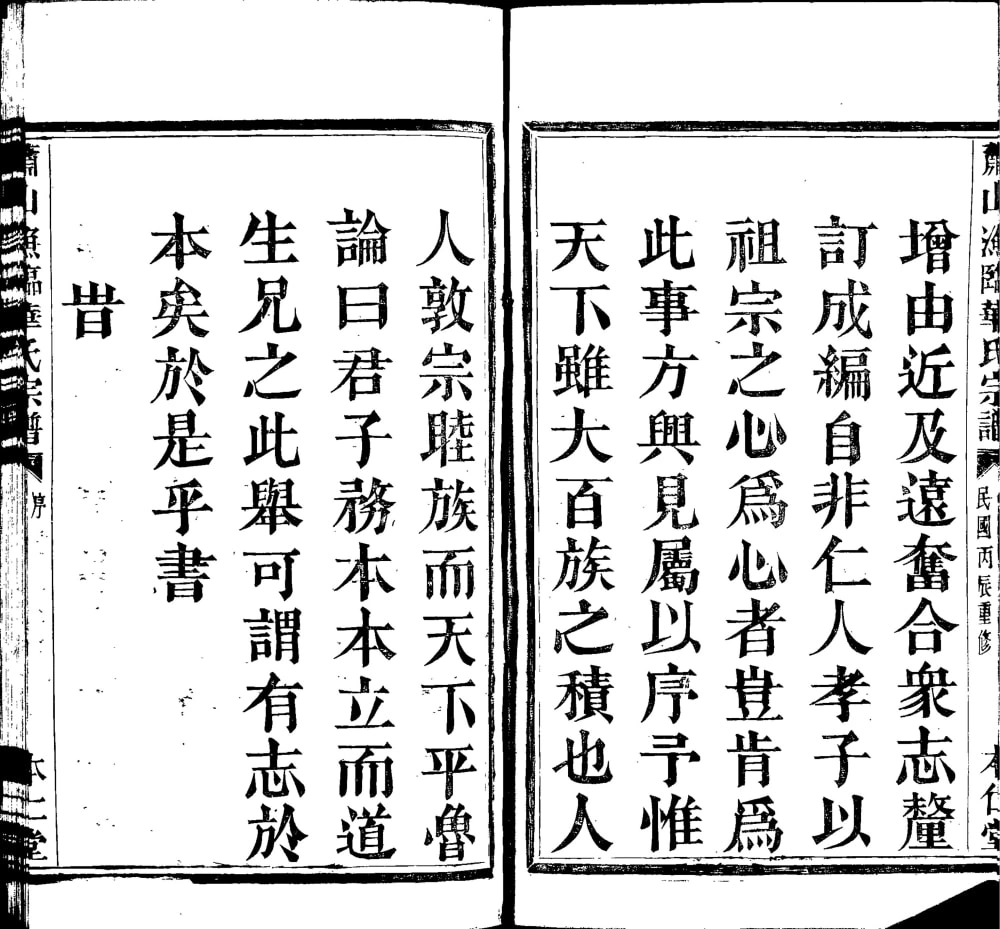 蕭山漁臨華氏宗譜
民國丙辰重修
本仁堂
增由近及遠奮合衆志釐
訂成編自非仁人孝子以
祖宗之心爲心者豈肯爲
此事方興見屬以序予惟
天下雖大百族之積也人
人敦宗睦族而天下平魯
論曰君子務本本立而道
生兄之此舉可謂有志於
本矣於是乎書
旹
蕭山漁臨華氏宗譜
序
本仁堂